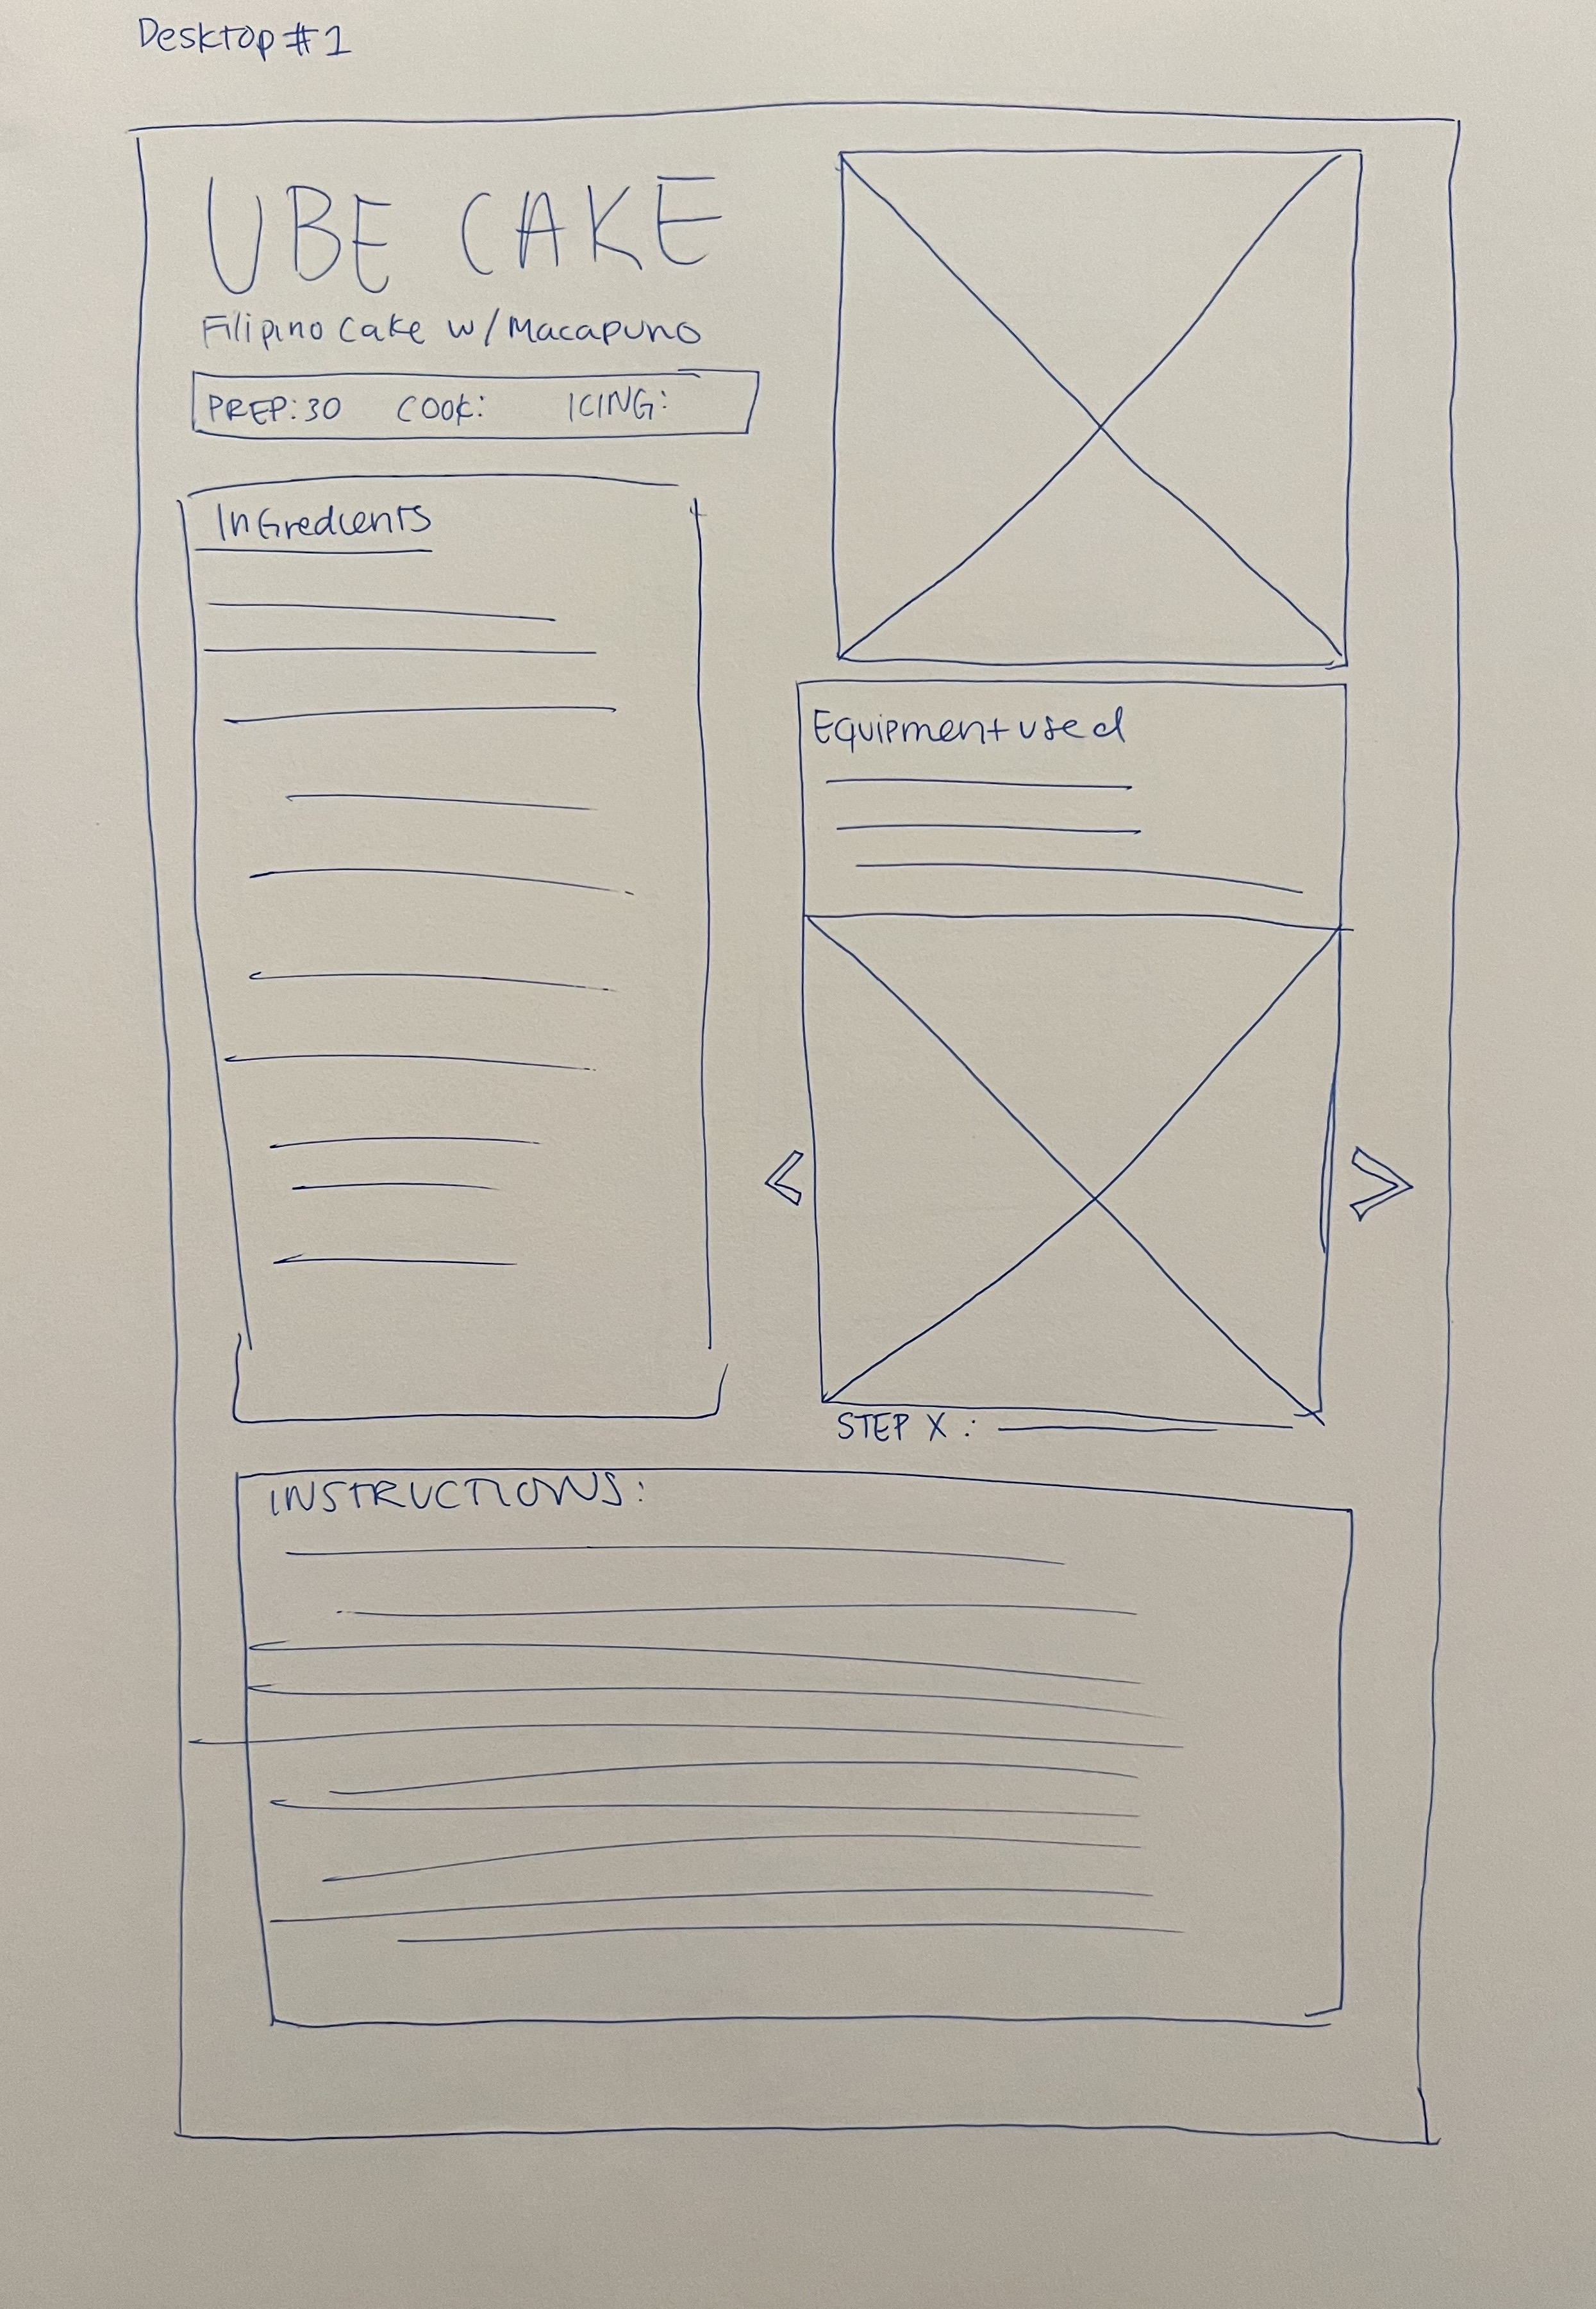 Desktop #1
UBE CAKE
Filipino Cake w/Macapuno
PREP: 30 COOK: ICING:
InGredients
Equipment used
< >
STEP X :
INSTRUCTIONS: